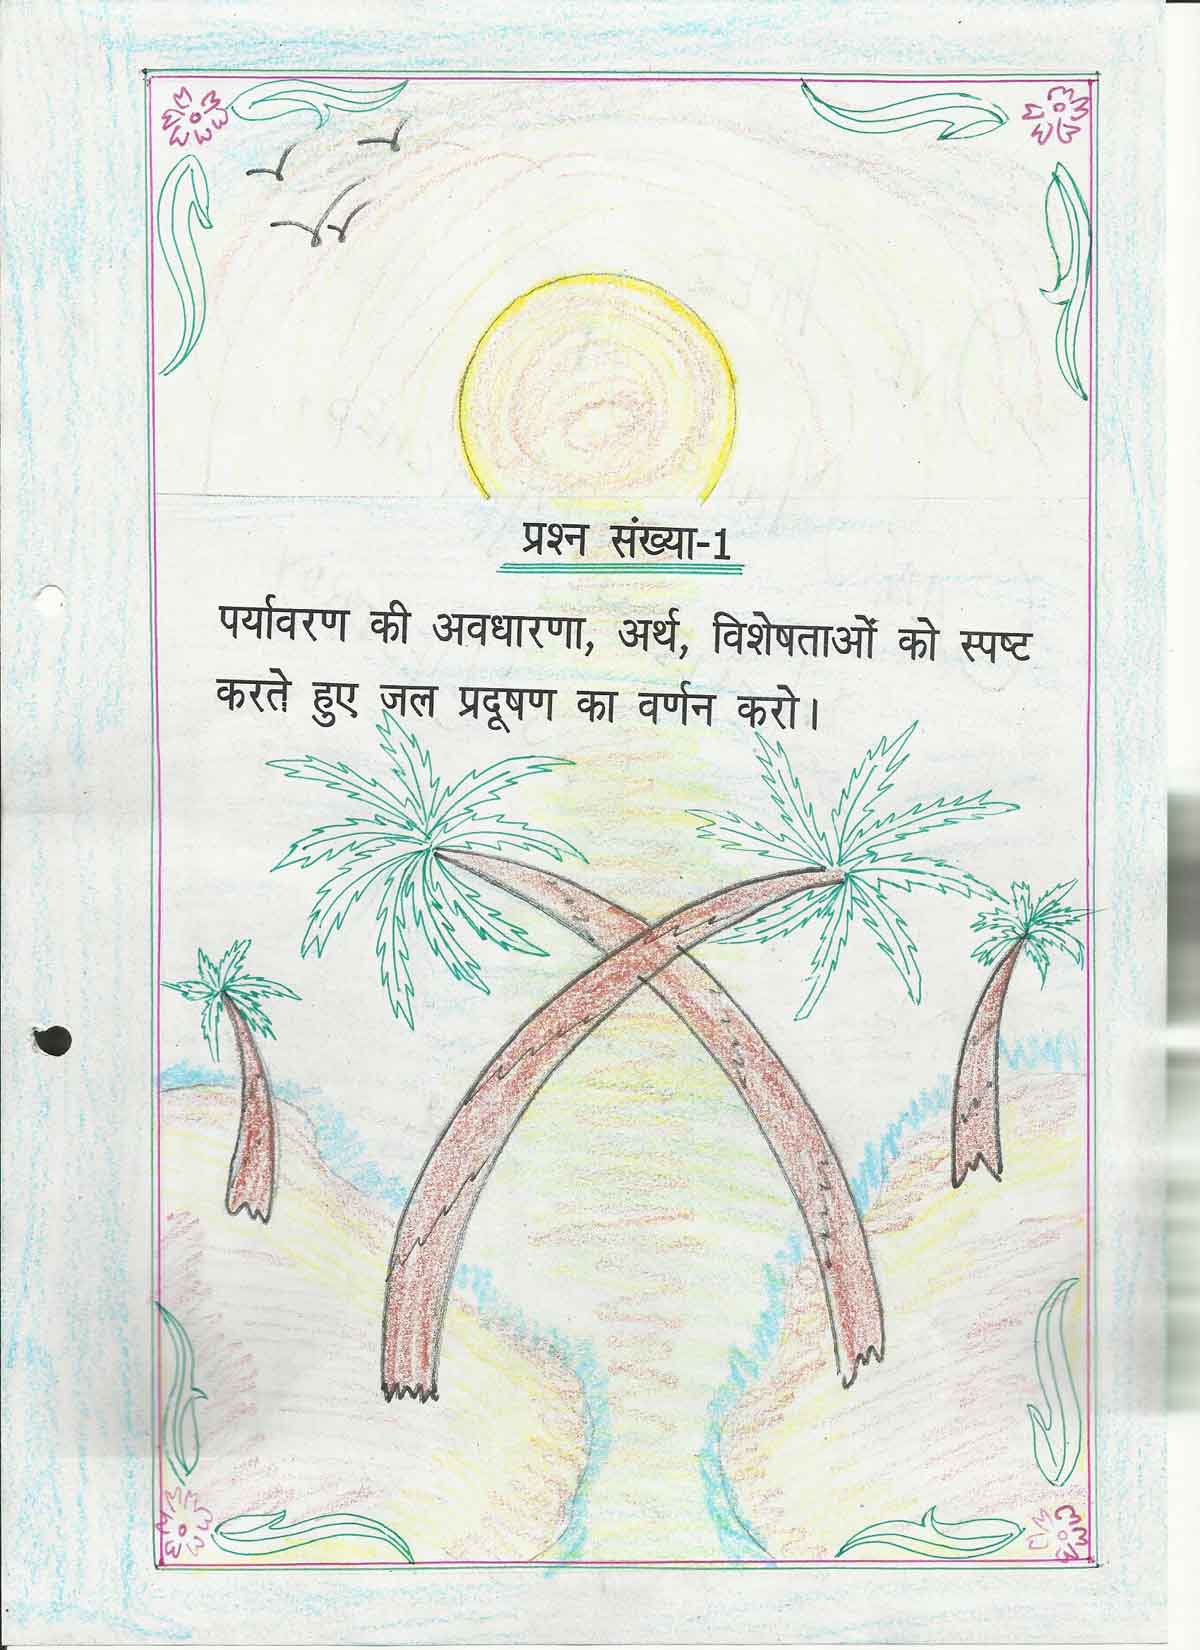 प्रश्न संख्या-1
पर्यावरण की अवधारणा, अर्थ, विशेषताओं को स्पष्ट
करते हुए जल प्रदूषण का वर्णन करो।